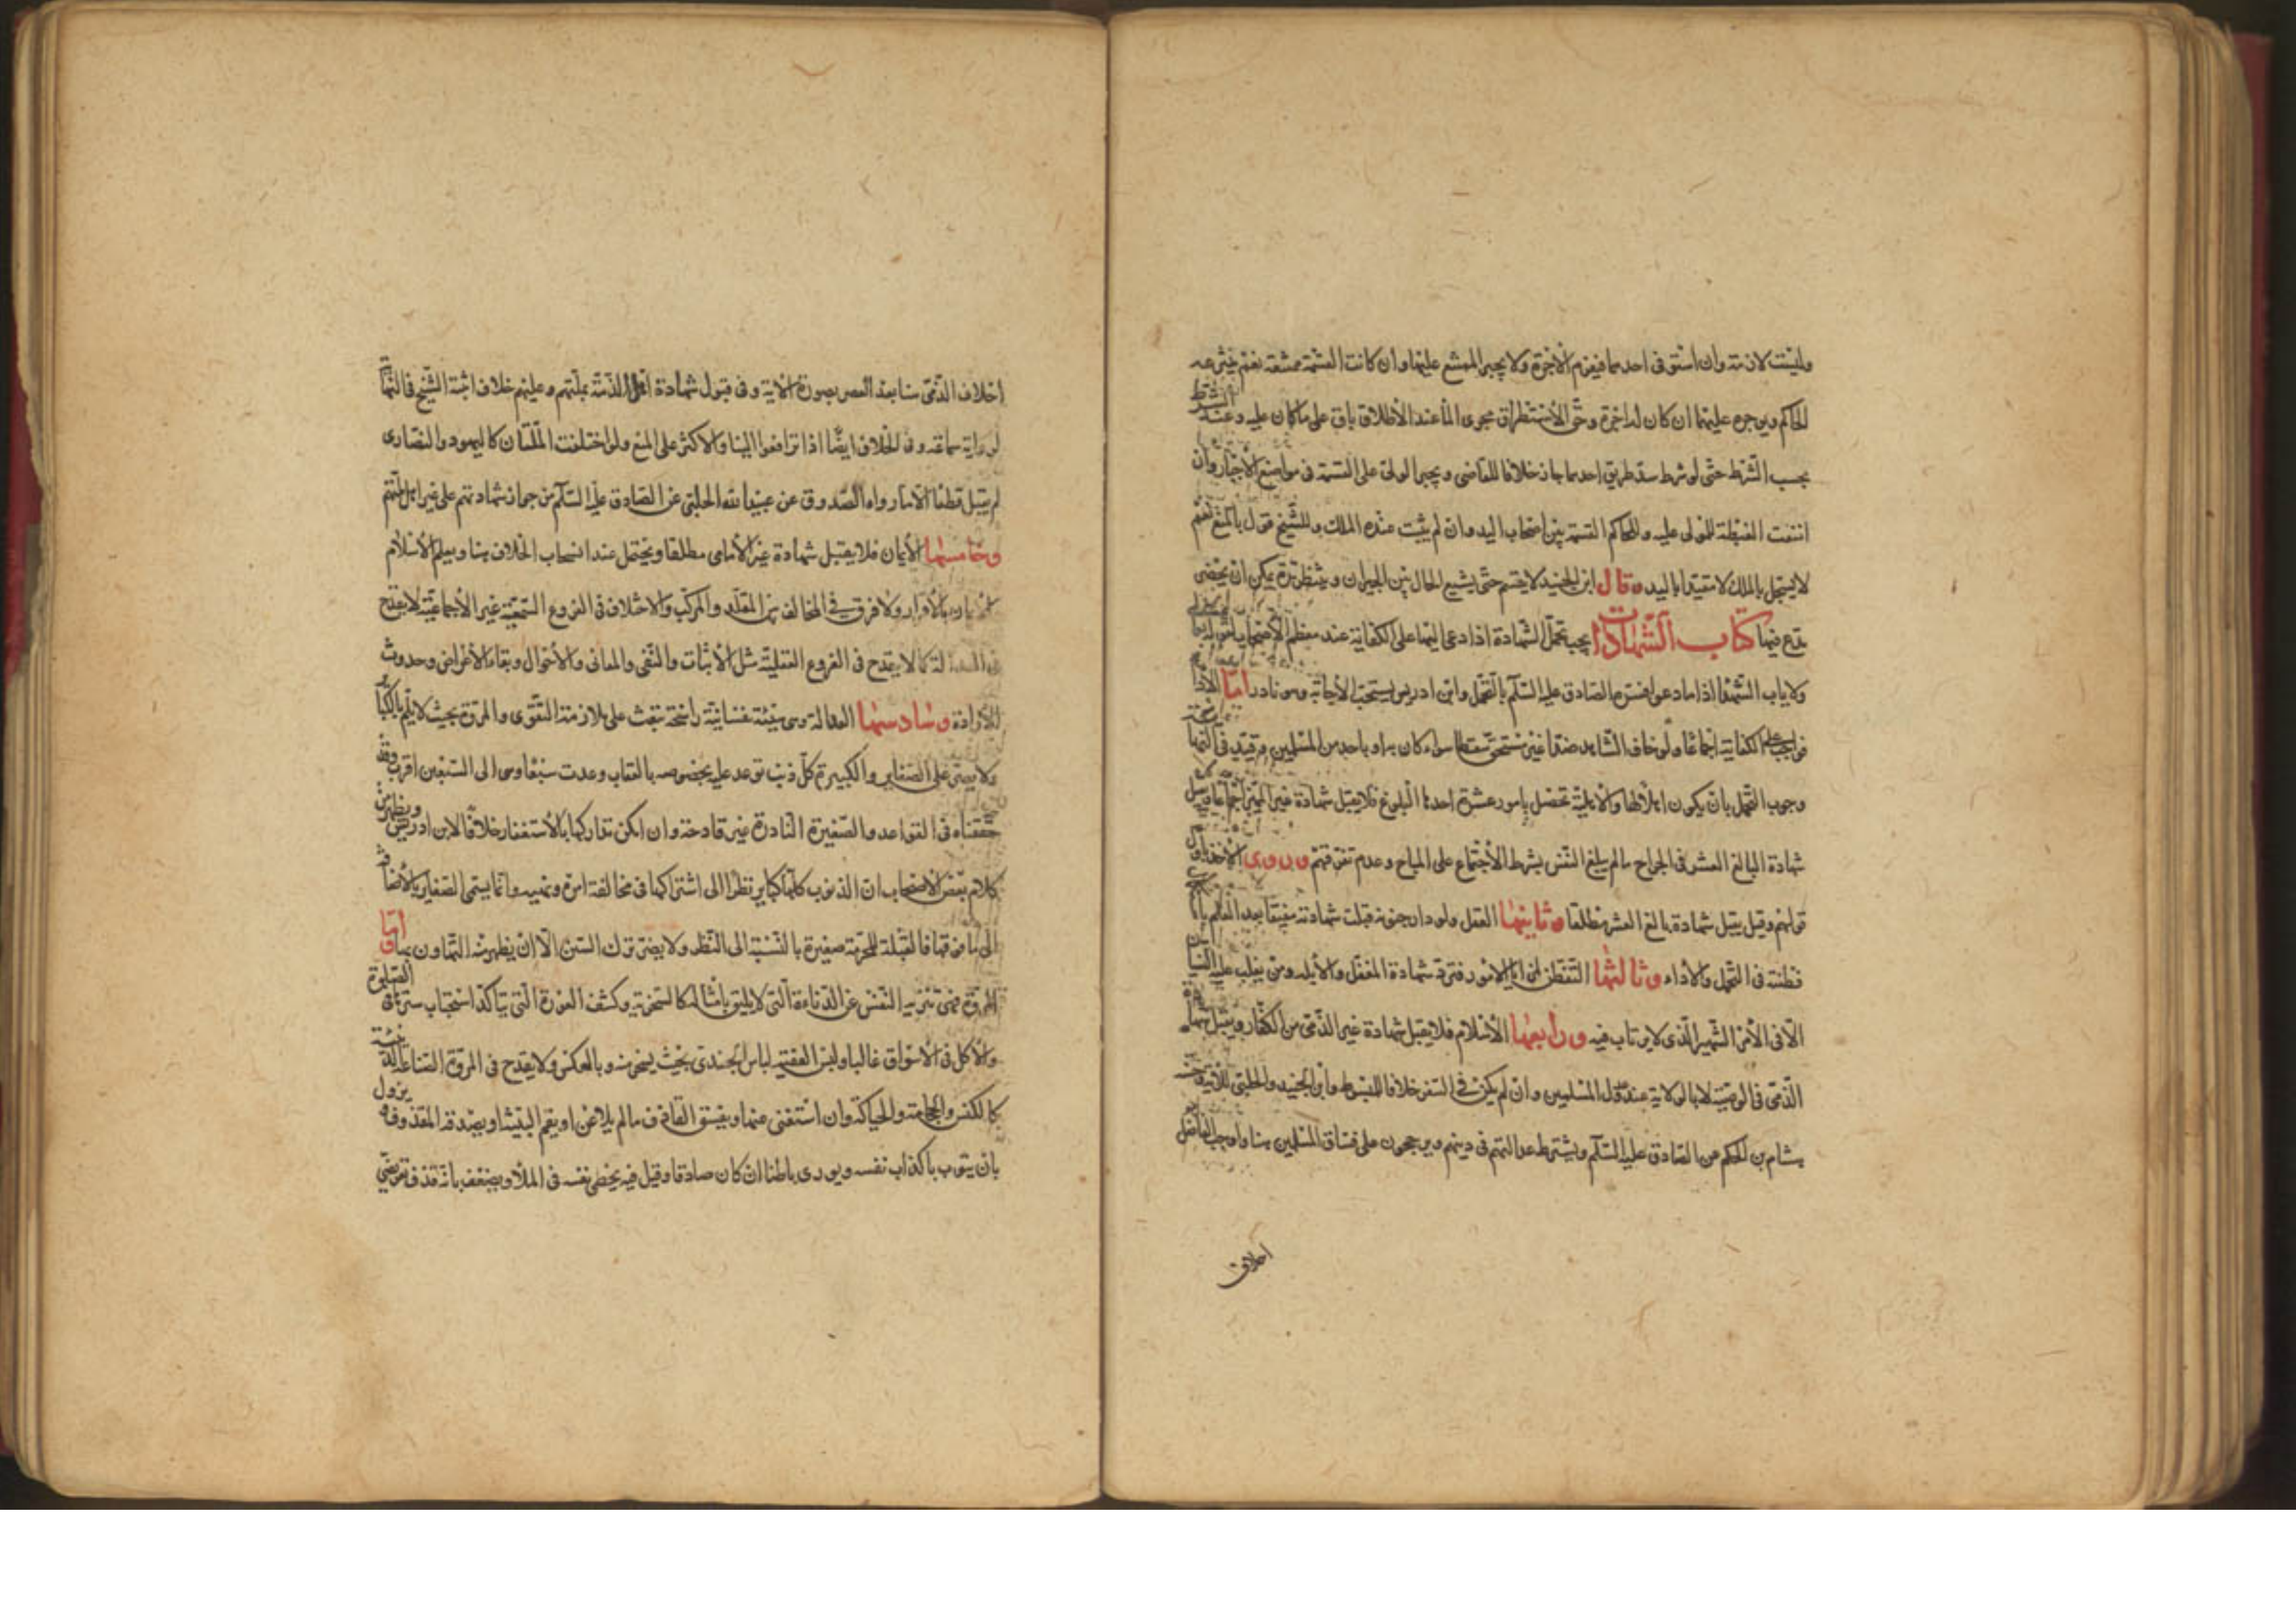 وليست لازمة وان استوفى احدهما فيغرم الاجرة ولا يجبر الممتنع عليها وان كانت القسمة ممتنعة نعم ينتزعه
الحاكم ويؤجره عليهما ان كان له اجرة وحق الاستطراق مجرى الماء عند الاطلاق باق على ما كان عليه وعند الشرط
بحسب الشرط حتى لو شرط سد طريق احدهما جاز خلافا للقاضى ويجبر الولى على القسمة فى مواضع الاجبار وان
انتفت الغبطة للمولى عليه وللحاكم القسمة بين اصحاب اليد وان لم يثبت عنده الملك وللشيخ قول بالمنع نعم
لا يسجل بالملك لا مقيدا باليد وقال ابن الجنيد لا يقسم حتى يشيع الحال بين الجيران وينتظر مدة يمكن ان يحضر
مدع فيها كتاب الشهادات يجب تحمل الشهادة اذا دعى اليها على الكفاية عند معظم الاصحاب لقوله تعالى
ولا ياب الشهداء اذا ما دعوا فسره الصادق عليه السلم بالتحمل وابن ادريس يستحب الاجابة وهو نادر اما الاداء
فواجب على الكفاية اجماعا ولو خاف الشاهد ضررا غير مستحق سقط سواء كان به او باحد من المسلمين وقيد فى النهاية
وجوب التحمل بان يكون اهلا لها والاهلية تحصل بامور عشرة احدها البلوغ فلا يقبل شهادة غير المميز اجماعا وتقبل
شهادة البالغ العشر فى الجراح ما لم يبلغ النفس بشرط الاجتماع على المباح وعدم تفرقهم وروى الاخذ باول
قولهم وقيل يقبل شهادة بالغ العشر مطلقا وثانيها العقل ولو دار جنونه قبلت شهادته مفيقا بعد العلم باستكمال
فطنته فى التحمل والاداء وثالثها التفطن لمزايا الامور فترد شهادة المغفل والابله ومن يغلب عليه النسيان
الا فى الامر الشهير الذى لا يرتاب فيه ورابعها الاسلام فلا يقبل شهادة غير الذمى من الكفار ويقبل شهادة
الذمى فى الوصية لا بالولاية عند عدول المسلمين وان لم يكن فى السفر خلافا للمبسوط وابن الجنيد والحلبى للاية
هشام بن الحكم عن الصادق عليه السلم ويشترط عدالتهم فى دينهم ويرجحون على فساق المسلمين هنا واوجب الفاضل
احلاف
احلاف الذمى هنا بعد العصر بصورة الاية وفى قبول شهادة اهل الذمة بملتهم وعليهم خلاف اثبته الشيخ فى النهاية
لرواية سماعه وفى الخلاف ايضا اذا ترافعوا الينا والاكثر على المنع ولو اختلفت الملتان كاليهود والنصارى
لم يقبل قطعا الا ما رواه الصدوق عن عبيد الله الحلبى عن الصادق عليه السلم من جواز شهادتهم على غير اهل ملتهم
وخامسها الايمان فلا يقبل شهادة غير الامامى مطلقا ويحتمل عند انسحاب الخلاف هنا ويعلم الاسلام
بالاقرار ولا فرق فى المخالف بين المقلد والمركب والاختلاف فى الفروع السمعية غير الاجماعية لا يقدح
فى العدالة كما لا يقدح فى الفروع العقلية مثل الاثبات والنفى والمعانى والاحوال وبقاء الاعراض وحدوث
الارادة وسادسها العدالة وهى هيئة نفسانية راسخة تبعث على ملازمة التقوى والمروة بحيث لا يلم بالكبائر
ولا يصر على الصغاير والكبيرة كل ذنب توعد عليه بخصوصه بالعقاب وعدت سبعا وهى الى السبعين اقرب وقد
حققناه فى القواعد والصغيرة النادرة غير قادحة وان امكن تداركها بالاستغفار خلافا لابن ادريس ويظهر من
كلام بعض الاصحاب ان الذنوب كلها كباير نظرا الى اشتراكها فى مخالفة امره ونهيه وانما يسمى الصغاير بالاضافة
الى ما فوقها فالقبلة المحرمة صغيرة بالنسبة الى النظر ولا يضر ترك السنن الا ان يظهر منه التهاون بها اما
المروة فهى تنزيه النفس عن الدناءة التى لا يليق بامثاله كالسخرية وكشف العورة التى يتاكد استحباب سترها فى الصلوة
والاكل فى الاسواق غالبا ولبس الفقيه لباس الجندى بحيث يسخر منه وبالعكس ولا يقدح فى المروة الصناعة الدنية
كالكنس والحجامة والحياكة وان استغنى عنها ويفسق القاذف ما لم يلاعن او يقم البينة او يصدقه المقذوف ويزول
بان يتوب باكذاب نفسه ويورى باطنا ان كان صادقا وقيل فيه يخطى نفسه فى الملا ويضعف بانه قذف تعريضى